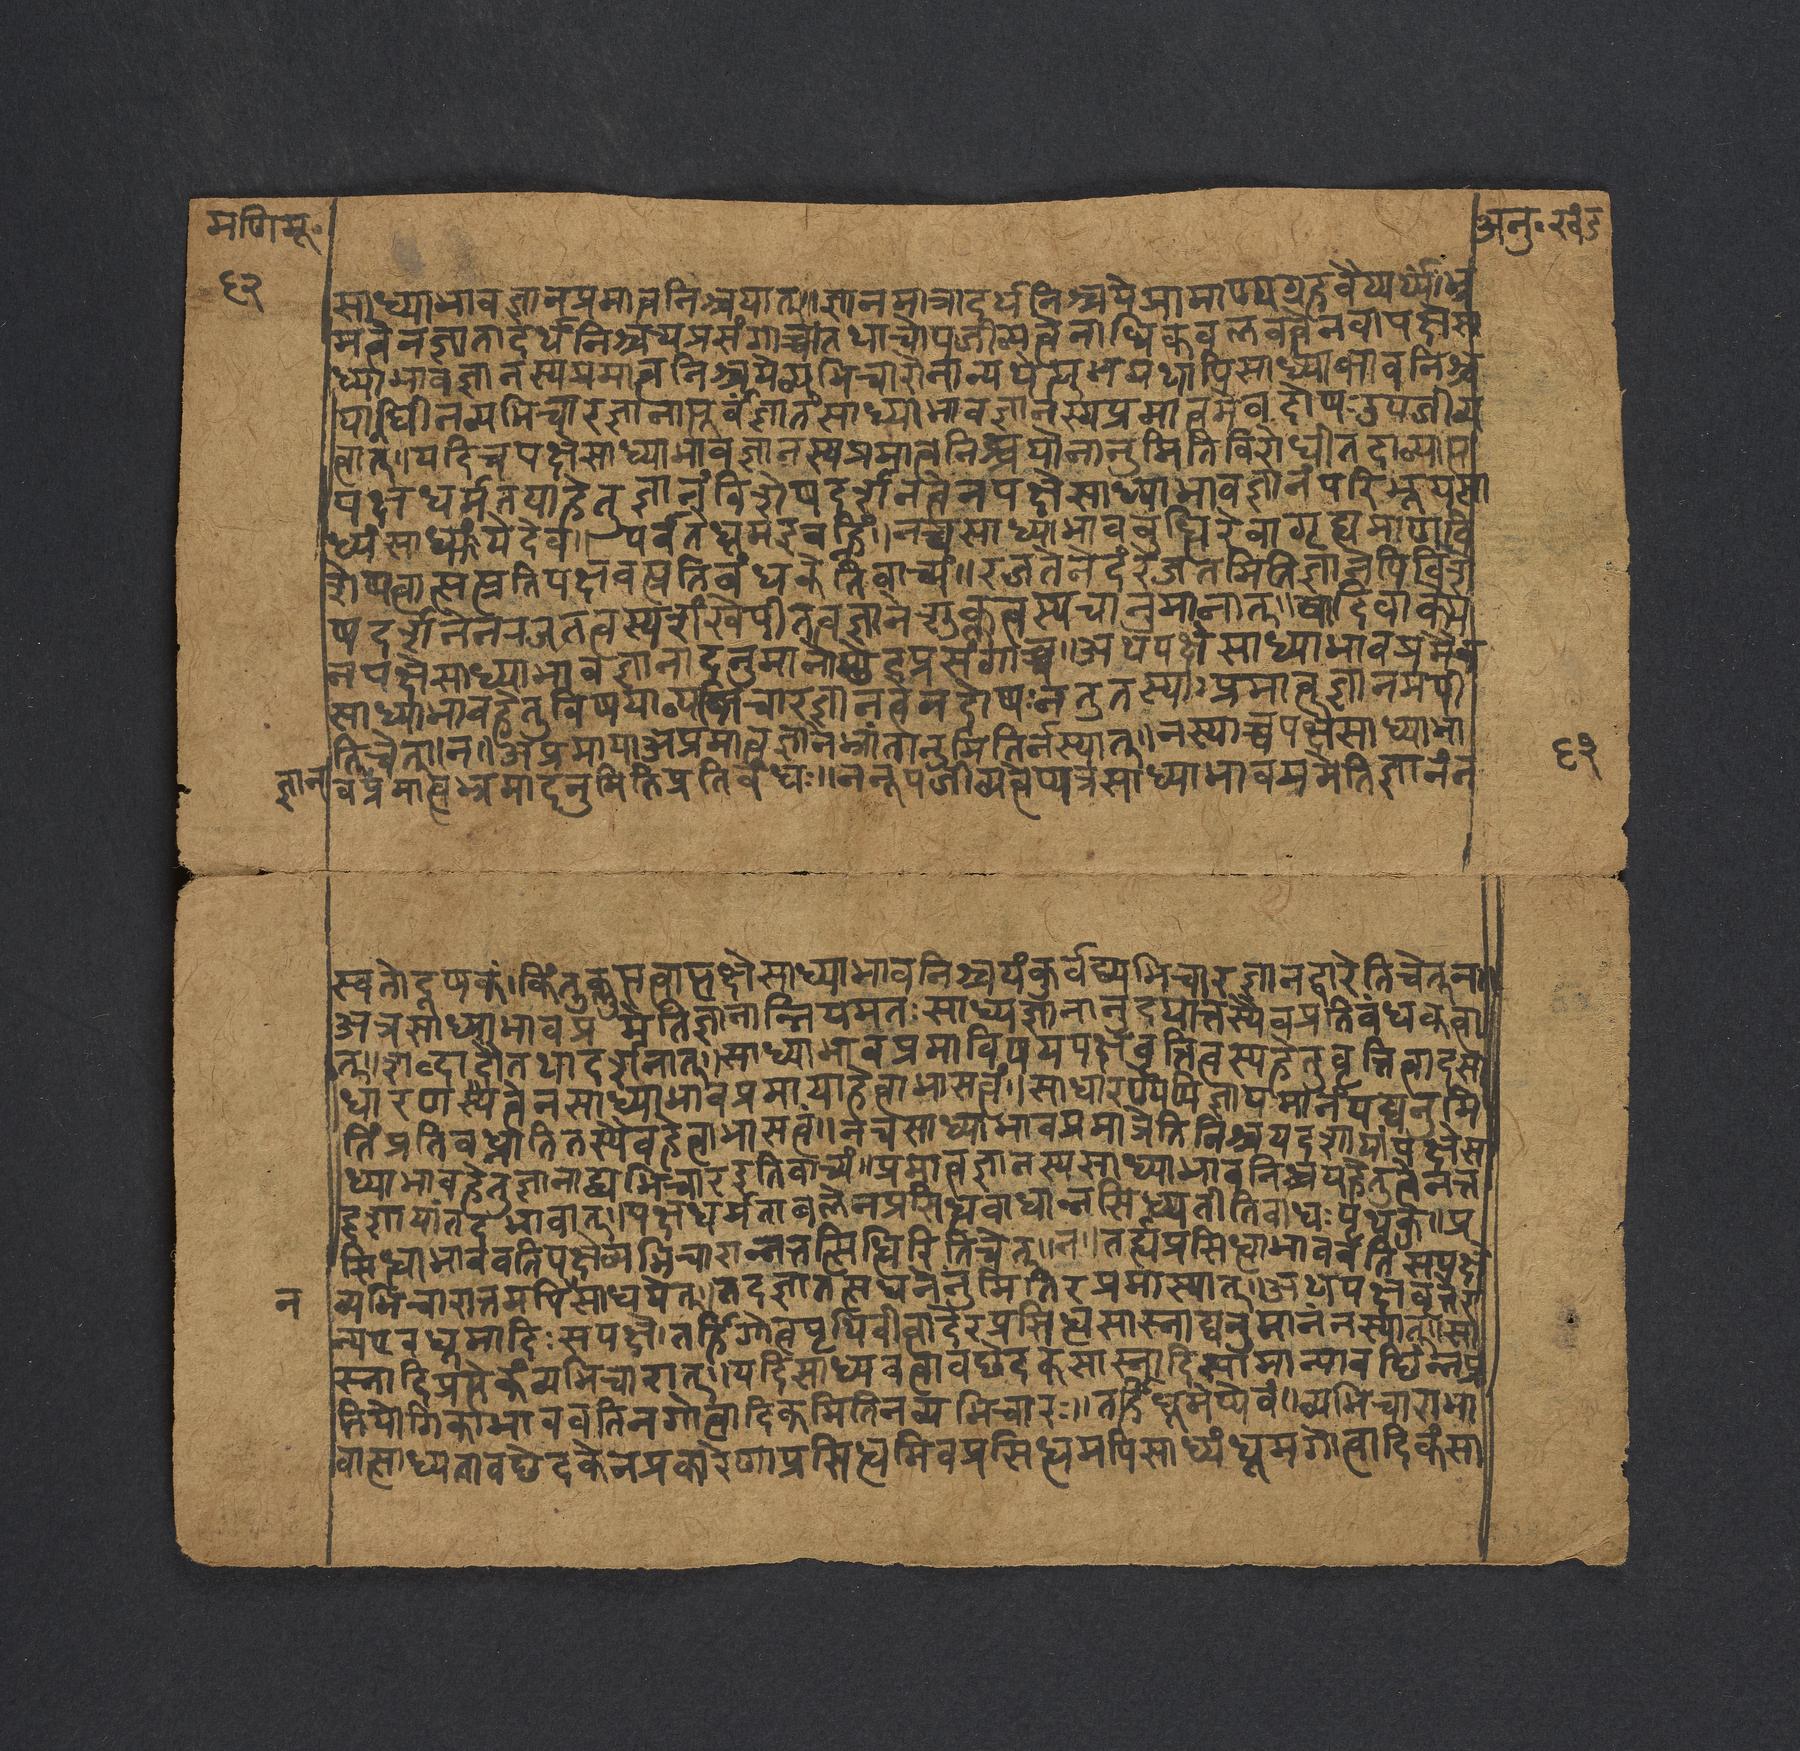 मणिमू॰
अनु॰खंड
६२
साध्याभावज्ञानप्रमात्वनिश्चयात्॥ज्ञानमात्रादर्थनिश्चयेप्रामाण्यग्रहवैयर्थ्यं।भ्र
मत्वेनज्ञातादर्थनिश्चयप्रसंगाच्च।तथाचोपजीव्यत्वेनाधिकबलवत्वेनवापक्षेसा
ध्याभावज्ञानस्यप्रमात्वनिश्चये
पाधीनव्यभिचारज्ञानात्पूर्वंज्ञातंसाध्याभावज्ञानस्यप्रमात्वमेवदोषःउपजीव्य
त्वात्।यदिचपक्षेसाध्याभावज्ञानस्यप्रमात्वनिश्चयोनानुमितिविरोधीतदाव्याप्त
पक्षधर्मतयाहेतुज्ञानंविशेषदर्शनत्वेनपक्षेसाध्याभावज्ञानंपरिभूयसा
ध्यंसाधयेदेव। पर्वतेधूमइववह्निं।नचसाध्याभावबुद्धिरेवागृह्यमाणवि
शेषत्वात्सत्प्रतिपक्षवत्प्रतिबंधकेतिवाच्यं॥रजतेनेदंरजतमितिज्ञानेपिविशे
षदर्शनेनरजतत्वस्यशंखेपीतत्वज्ञानेशुक्लत्वस्यचानुमानात्॥वादिवाक्ये
नपक्षेसाध्याभावज्ञानादनुमानोच्छेदप्रसंगाच्च॥अथपक्षेसाध्याभावप्रमैव
साध्याभावहेतुविषयाव्यभिचारज्ञानत्वेनदोषःनतुतस्याःप्रमात्वज्ञानमपी
तिचेत्।न।अप्रमायाअप्रमात्वज्ञानेभ्रांतानुमितिर्नस्यात्।नस्याच्चपक्षेसाध्याभा
६२
ज्ञान
वप्रमात्वभ्रमादनुमितिप्रतिबंधः॥ननूपजीव्यत्वेप्यत्रसाध्याभावप्रमेतिज्ञानंन
स्वतोदूषकं।किंतुक्लृप्तत्वात्पक्षेसाध्याभावनिश्चयंकुर्वद्व्यभिचारज्ञानद्वारेतिचेत्न॥
अत्रसाध्याभावप्रमेतिज्ञानान्नियमतःसाध्यज्ञानानुदयात्तस्यैवप्रतिबंधकत्वा
त्॥शब्दादौतथादर्शनात्।साध्याभावप्रमाविषयपक्षवृत्तित्वस्यहेतुवृत्तित्वादसा
धारणस्यैत्वेनसाध्याभावप्रमायाहेत्वाभासत्वं।साधारण्येपिज्ञायमानंयद्यनुमि
तिंप्रतिबध्नातितस्यैवहेत्वाभासत्वं॥नचसाध्याभावप्रमात्रेतिनिश्चयदशायांपक्षेसा
ध्याभावहेतुज्ञानाद्व्यभिचारइतिवाच्यं॥प्रमात्वज्ञानस्यसाध्याभावनिश्चयहेतुत्वेनत
द्दशायांतदभावात्।पक्षधर्मताबलेनप्रसिध्यबाधान्नसिध्यतीतिबाधःपृथक्॥प्र
सिध्याभाववतिपक्षेव्यभिचारान्नतत्सिद्धिरितिचेत्।न॥तर्ह्यप्रसिध्याभाववतिसपक्षे
न
व्यभिचारात्तमपिसाधयेत्।तदज्ञातत्सधनेनुमितिरप्रमास्यात्।अथपक्षवृत्तेर
न्यएवधूमादिःसपक्षे।तर्हिगोत्वपृथिवीत्वादेरप्रसिध्यसास्नाद्यनुमानंनस्यात्॥सा
स्नादिप्रत्येकंव्यभिचारात्।यदिसाध्यवत्वावछेदकसास्नादिसामान्यावछिन्नप्र
तियोगिकाभाववतिनगोत्वादिकमितिनव्यभिचारः॥तर्हिधूमेप्येवं॥व्यभिचाराभा
वात्साध्यतावछेदकेनप्रकारेणाप्रसिध्यमिवप्रसिध्यमपिसाध्यंधूमगोत्वादिकंसा